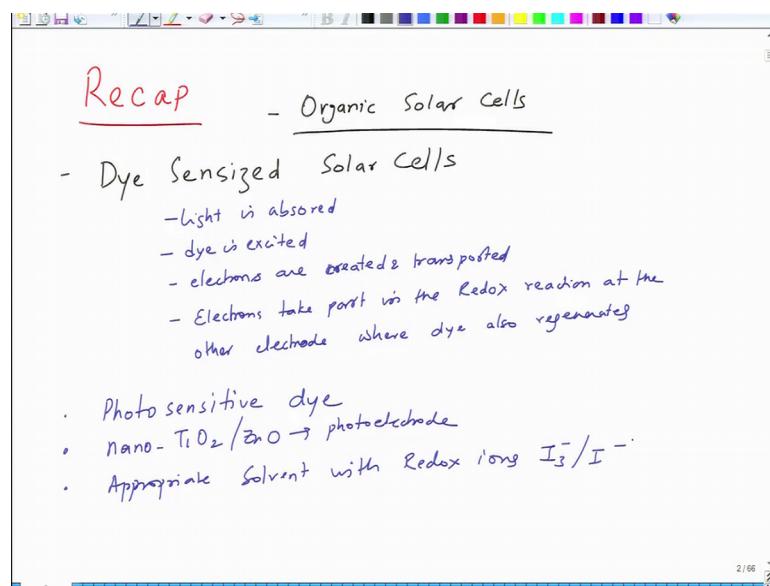 Recap
- Organic Solar Cells
- Dye Sensized Solar Cells
- light is absored
- dye is excited
- electrons are created & transported
- Electrons take part in the Redox reaction at the
other electrode where dye also regenerates
. Photosensitive dye
. nano- TiO2/ZnO → photoelectrode
. Appropriate Solvent with Redox ions I3-/I-
2 / 66